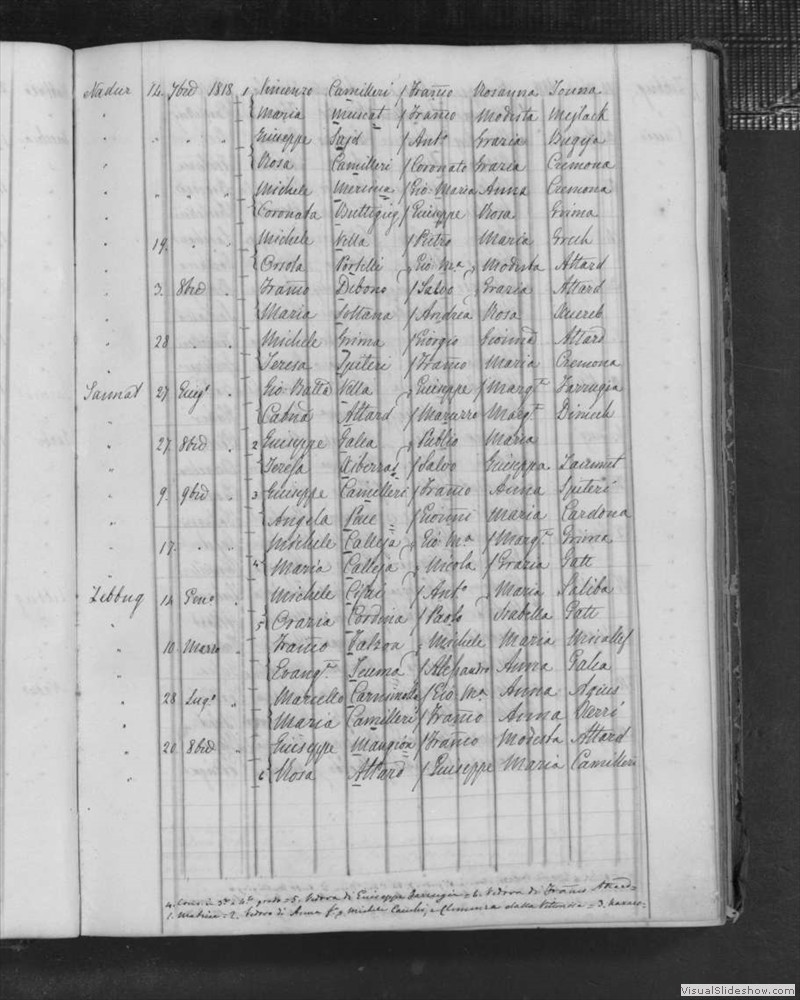 Nadur 14. 7bre 1818 1 Vincenzo Camilleri / Franco Rosanna Teuma
" Maria Muscat / Franco Modesta Mejlack
" " " " Giuseppe Said / Anto Grazia Bugeja
" Rosa Camilleri / Coronato Grazia Cremona
" " " " Michele / Gio Maria Anna Cremona
" Coronata Buttigieg / Giuseppe Rosa Grima
" 19. " " Michele Vella / Pietro Maria Grech
" Orsola Portelli Gio Ma Modesta Attard
" 3. 8bre " Franco Debono / Salvo Grazia Attard
" Maria Soltana / Andrea Rosa Xuereb
" 28 " " Michele Grima / Giorgio Attard
" Teresa Spiteri / Franco Maria Cremona
Sannat 27 " Gio Batta Villa Giuseppe / Marga Farrugia
" Attard / Marga Dimech
" 27. 8bre " 2 Giuseppe Galea Publio Maria
" Teresa / Salvo Giuseppa Zammit
" 9. 9bre " 3 Giuseppe Camilleri / Franco Anna Spiteri
" Angela Pace / Maria Cardona
" 17. " " Michele Calleja Gio Ma / Marga Grima
" 4 Maria Calleja Nicola / Grazia Gatt
Zebbug 14 " Michele / Anto Maria Saliba
" 5 Grazia Cordina / Paolo Isabella Gatt
" 10 Marzo " Franco Michele Maria Micallef
" Teuma / Anna Galea
" 28 Lugo " Marcello / Gio Ma Anna Agius
" Maria Camilleri / Franco Anna
" 20 8bre " Giuseppe Mangion / Franco Modesta Attard
" 6 Rosa Attard / Giuseppe Maria Camilleri
4. in 3o a 4o grado = 5. Vedova di Giuseppe Farrugia = 6. Vedova di Franco
1. = 2. Vedovo di Anna = 3.
VisualSlideshow.com